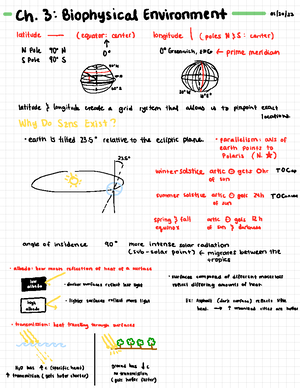 Ch. 3: Biophysical Environment
01/20/22
latitude — (equator: center)
longitude | (poles N & S: center)
N Pole 90° N
S Pole 90° S
0°
0° Greenwich, ← prime meridian
latitude & longitude create a grid system that allows us to pinpoint exact
locations.
Why Do Szns Exist?
• earth is tilted 23.5° relative to the ecliptic plane.
• parallelism: axis of
earth points to
Polaris (N. ★)
23.5°
winter solstice arctic ⊙ gets 0hr
of sun
summer solstice arctic ⊙ gets 24h
of sun
spring & fall arctic ⊙ gets 12h
equinox of sun & darkness
angle of incidence 90° more intense solar radiation
(sub-solar point) ← migrates between the
tropics
• albedo: how much reflection of heat of a surface
low
albedo
- darker surfaces reflect low light
high
albedo
- lighter surfaces reflect more light
• surfaces composed of different materials
reflect differing amounts of heat.
Ex: asphalt (dark surface) reflects little
heat → ↑ urbanized cities are hotter
• transmission: heat traveling through surfaces
H2O has ↑ c (specific heat)
↑ transmission (gets hotter slower)
ground has ↓ c
no transmission
(gets hotter faster)